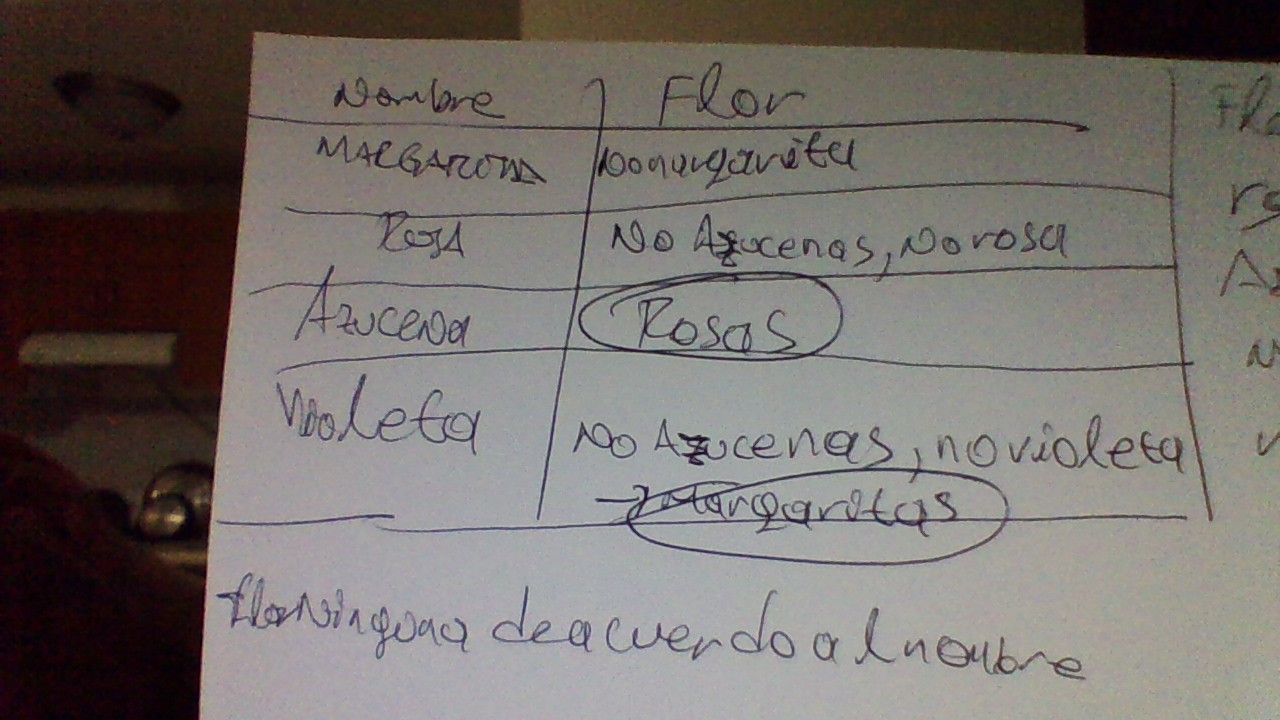 Nombre Flor
MARGARITA No margarita
ROSA No Azucenas, No rosa
Azucena Rosas
Violeta No Azucenas, no violeta
→ Margaritas
flor Ninguna de acuerdo al nombre